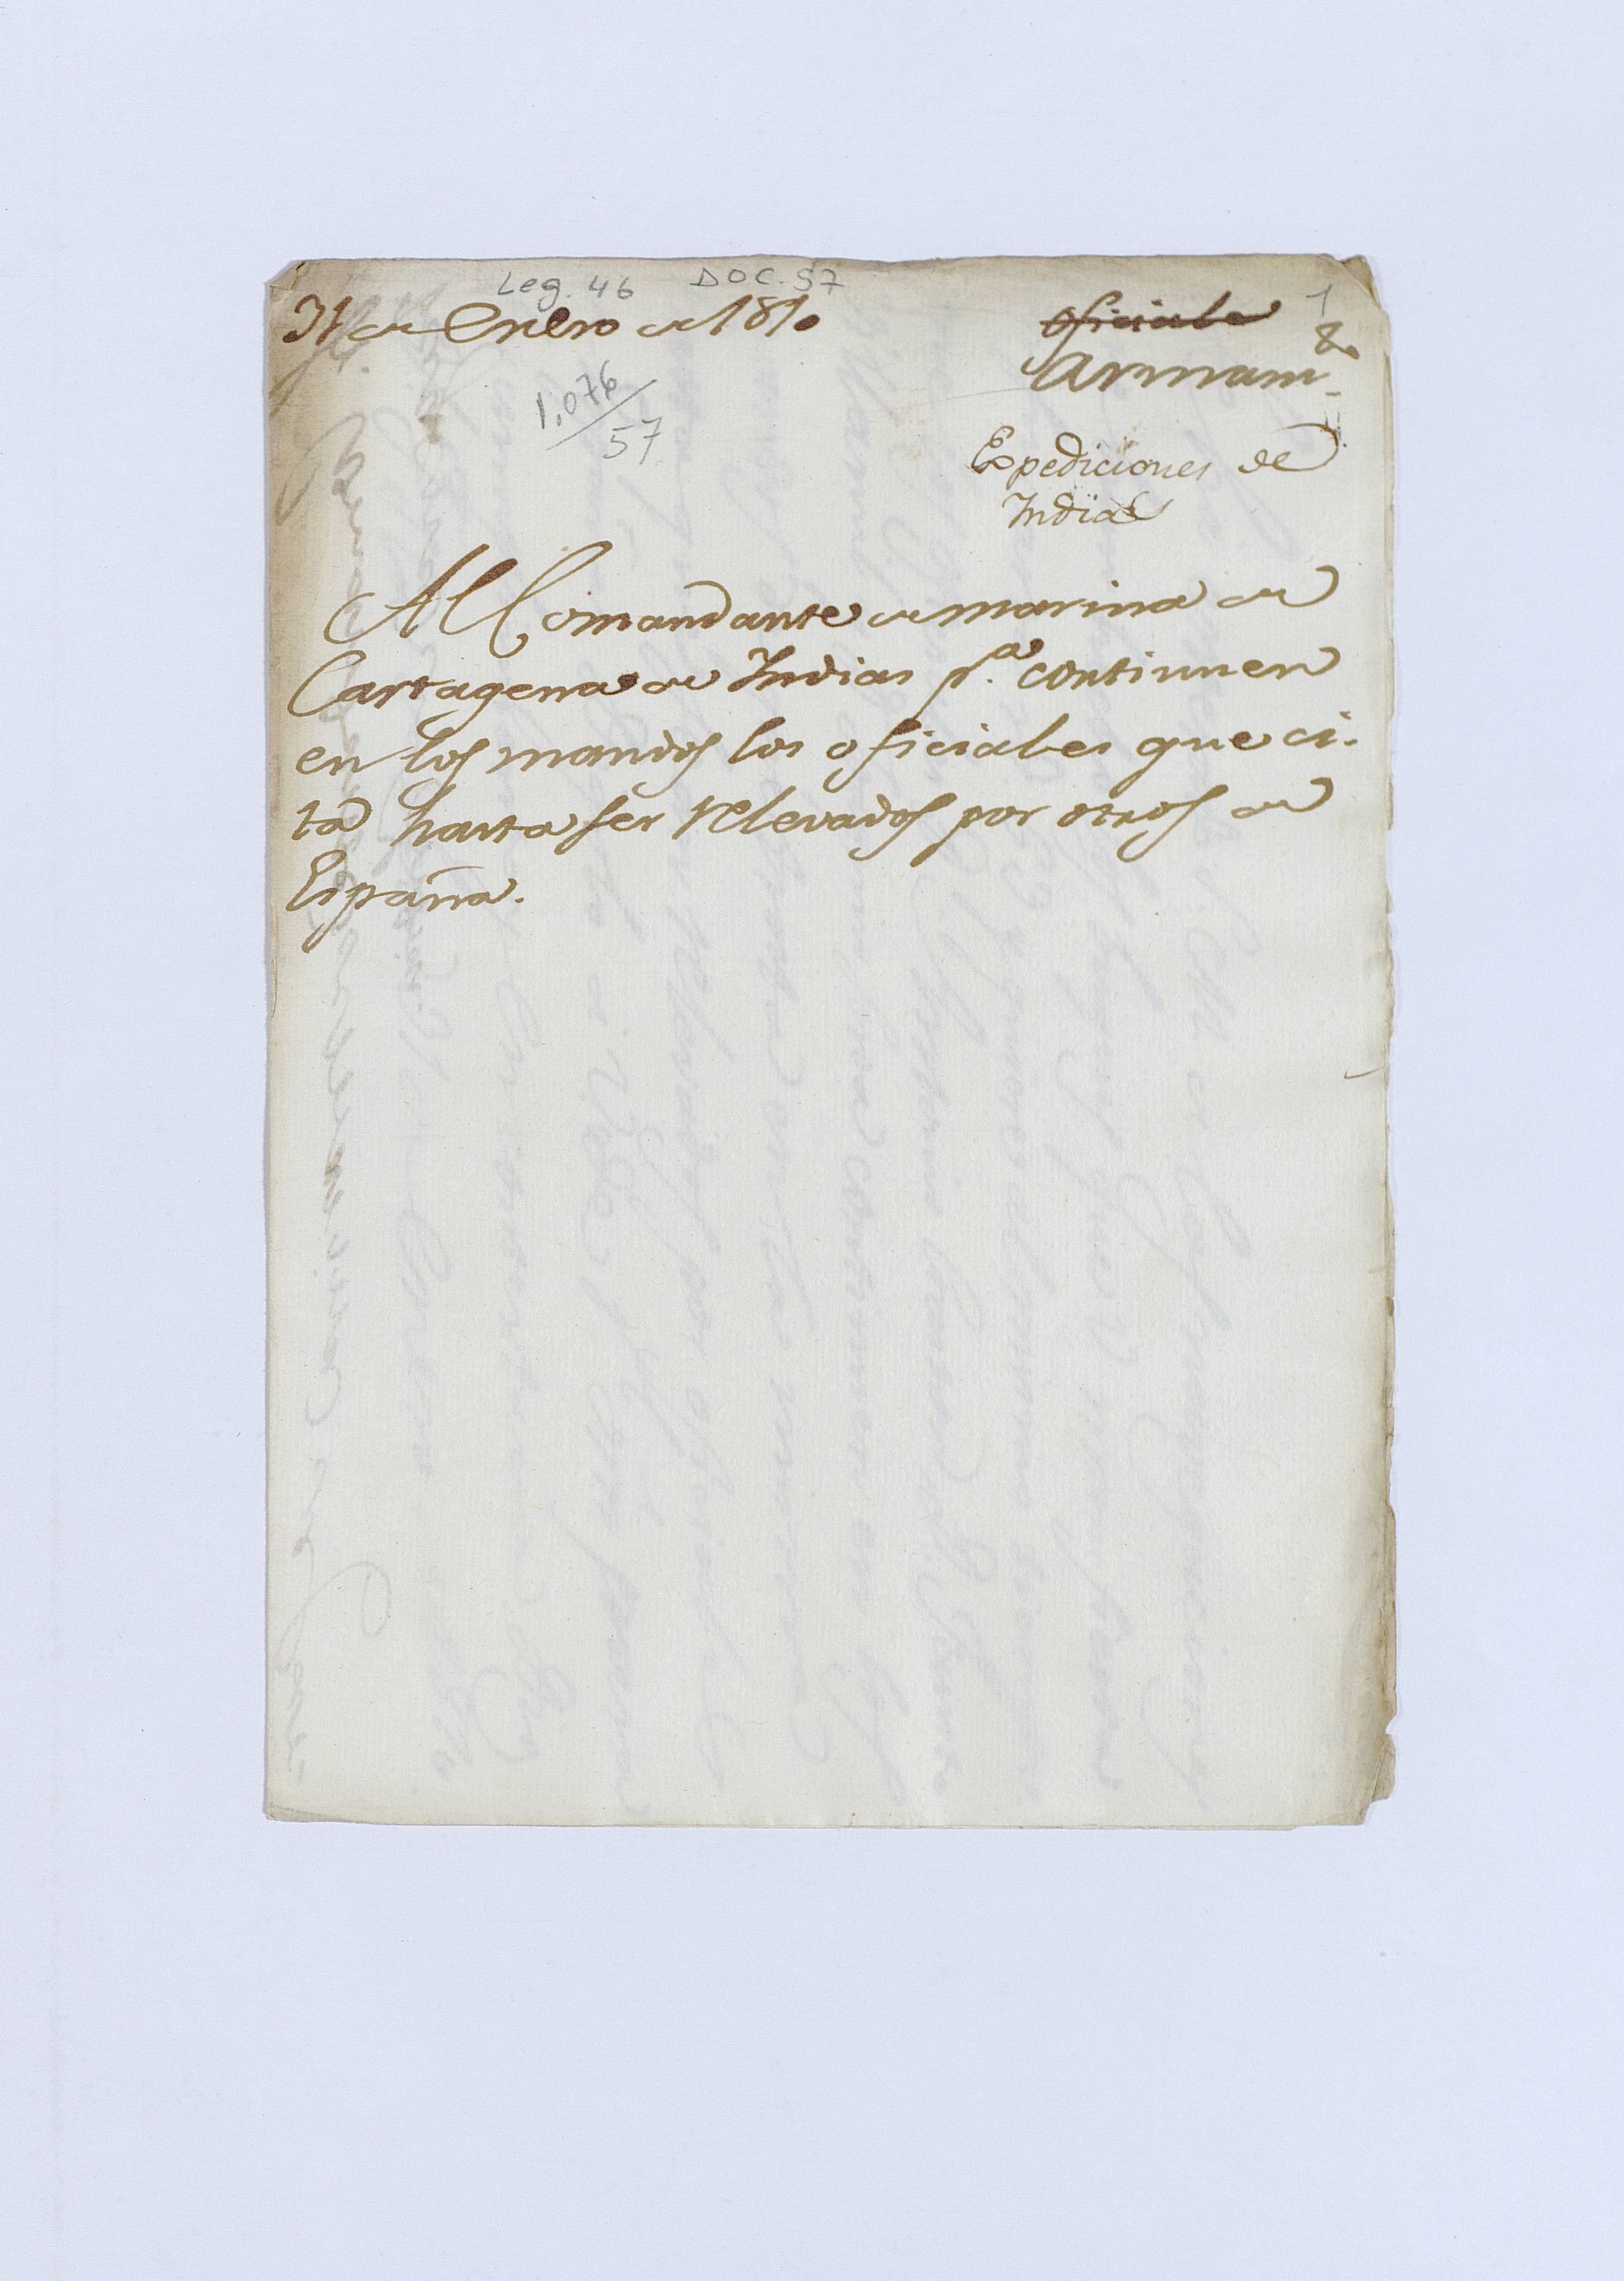 Leg. 46 DOC. 57
1
31 de Enero de 1810
Oficiales
&
Armam
1.076
57
Expediciones de
Indias
Al Comandante de marina de
Cartagena de Indias pa. continuen
en los mandos los oficiales que ci-
ta hasta ser relevados por otros de
España.